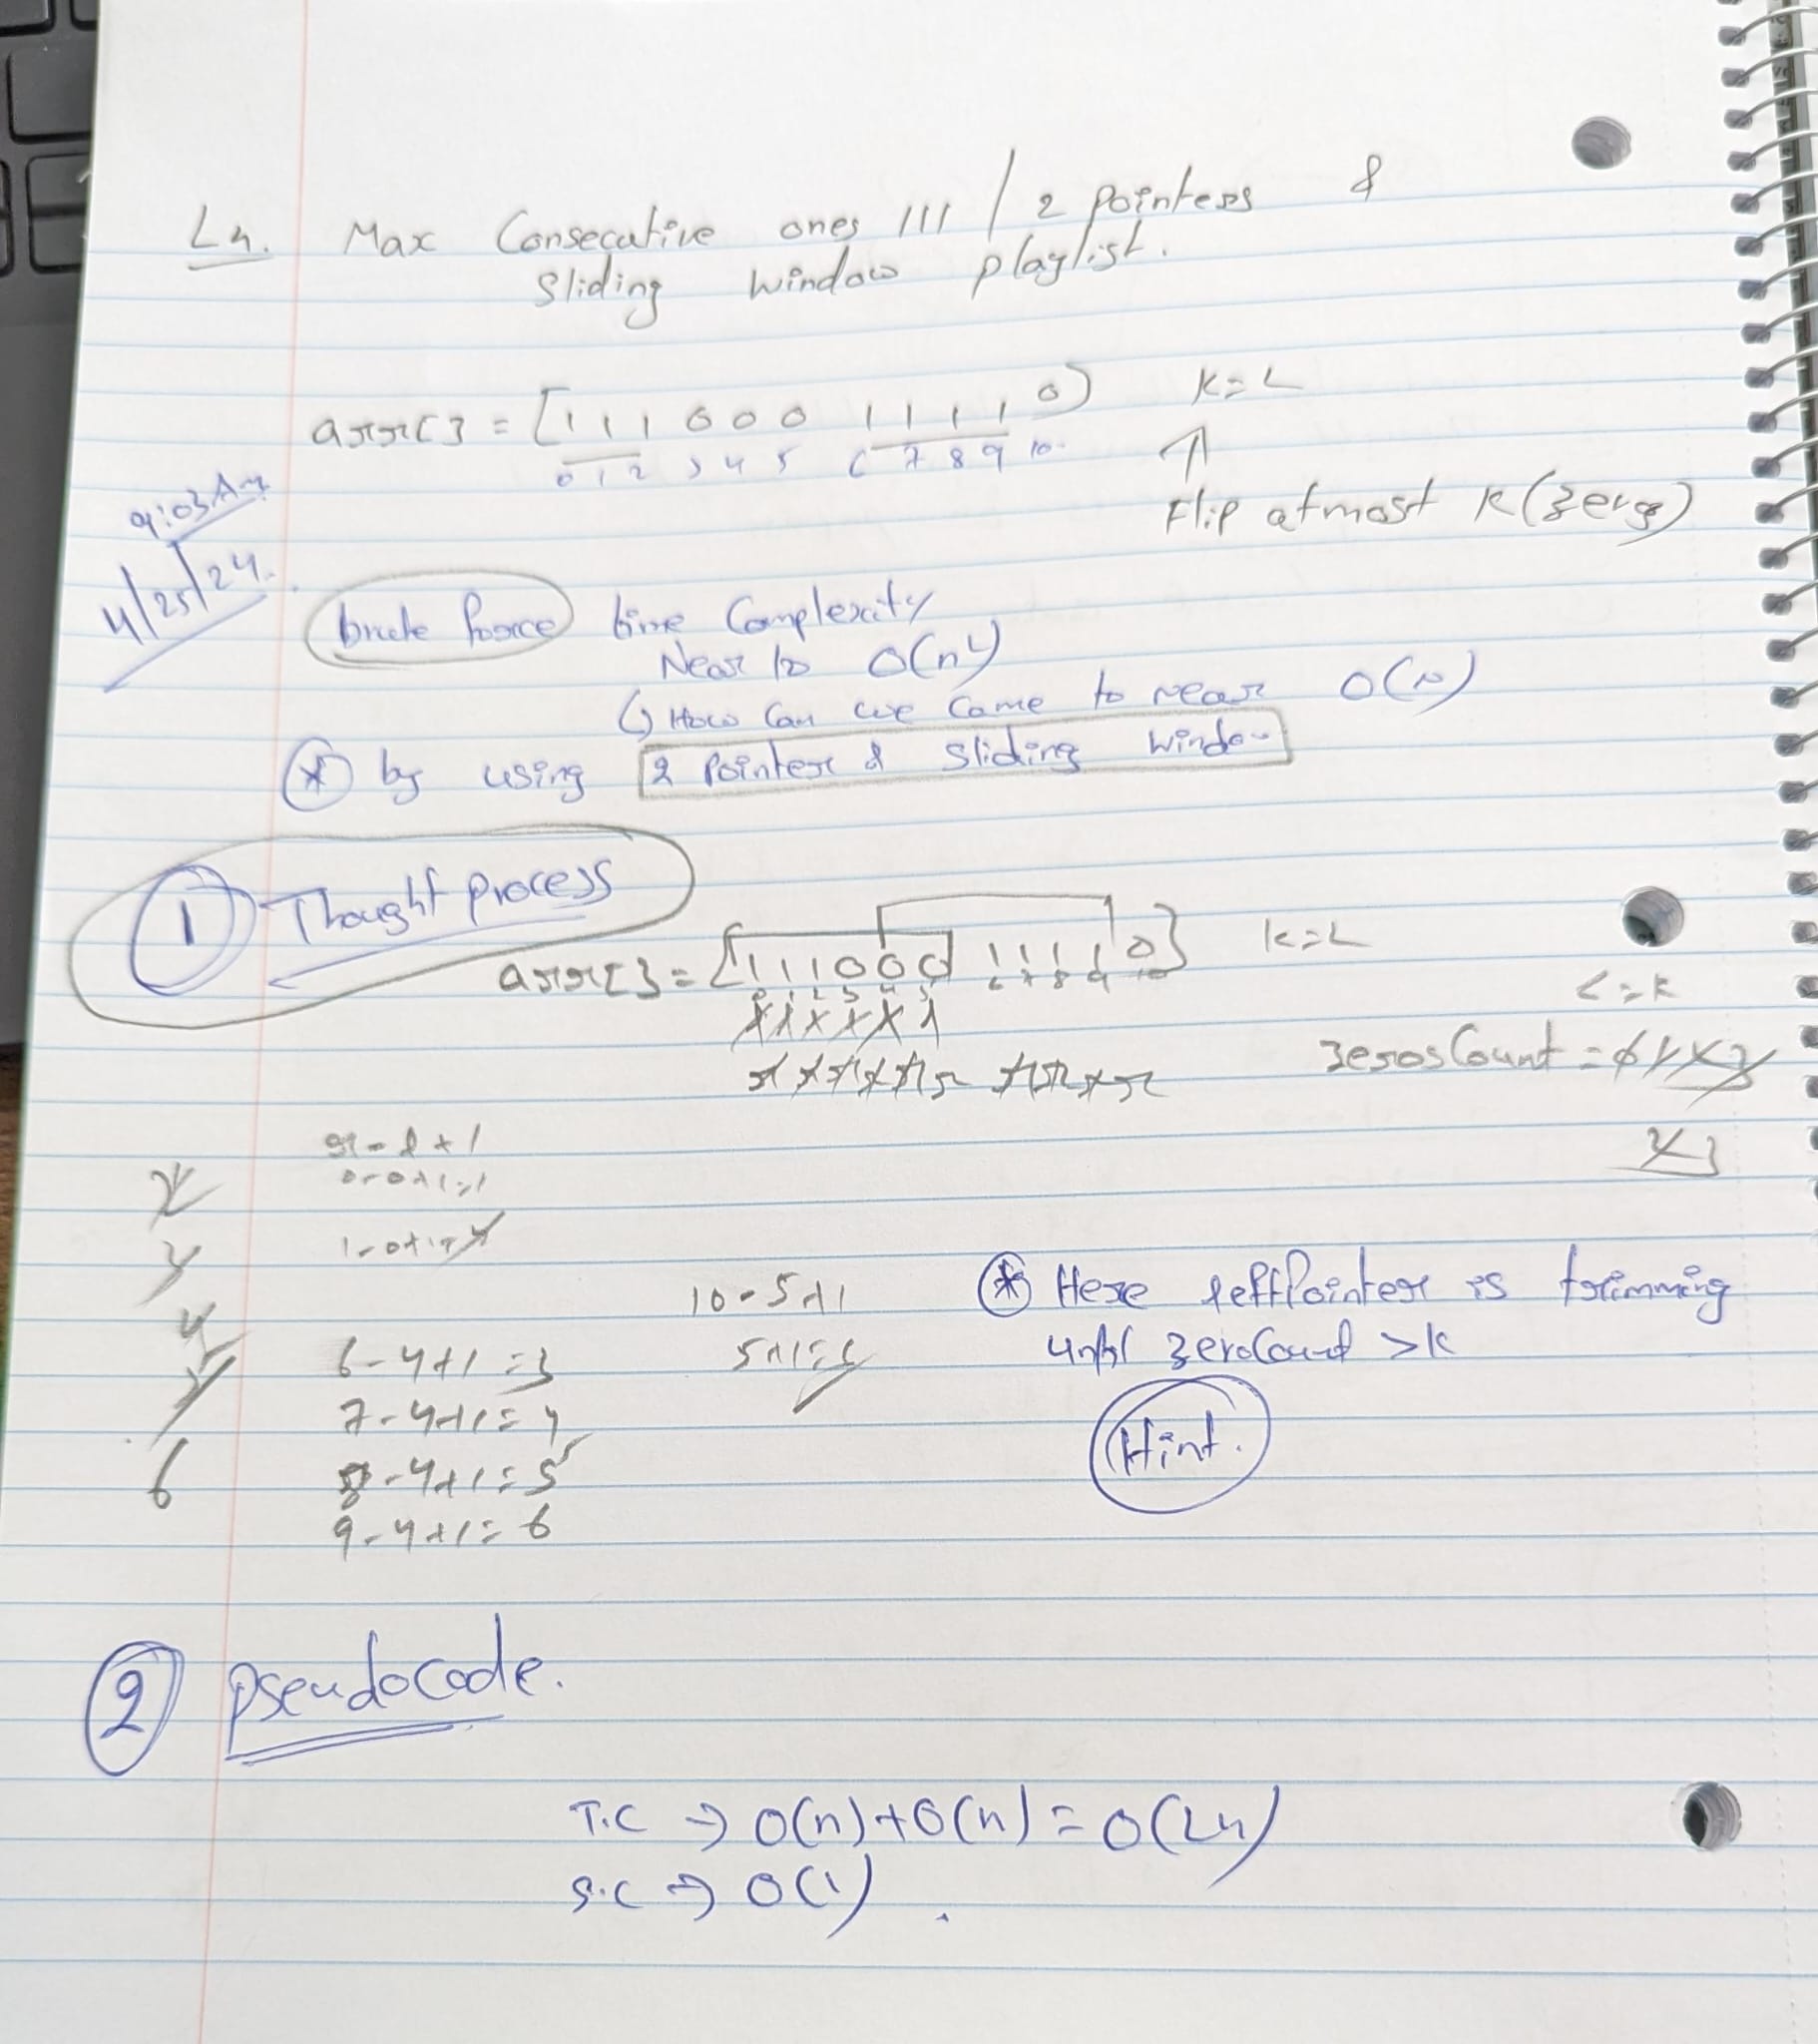 L4. Max Consecutive ones III / 2 pointers &
Sliding Window playlist.
arr[] = [1 1 1 0 0 0 1 1 1 1 0] k=2
0 1 2 3 4 5 6 7 8 9 10
Flip atmost k(zeros)
9:03 AM
4/25/24.
brute force time Complexity
Near to O(n²)
↳ How Can we Come to near O(n)
* by using 2 Pointer & Sliding Window
1 Thought process
arr[] = [1 1 1 0 0 0 1 1 1 1 0] k=2
0 1 2 3 4 5 6 7 8 9 10
<=k
zerosCount = 0 1 2 3
2 3
r-l+1
0-0+1=1
1-0+1=2
2
3
4
5
6
10-5+1
5+1=6
6-4+1=3
7-4+1=4
8-4+1=5
9-4+1=6
* Here leftPointer is trimming
until zeroCount >k
Hint.
2 pseudocode.
T.C → O(n)+O(n)=O(2n)
S.C → O(1).